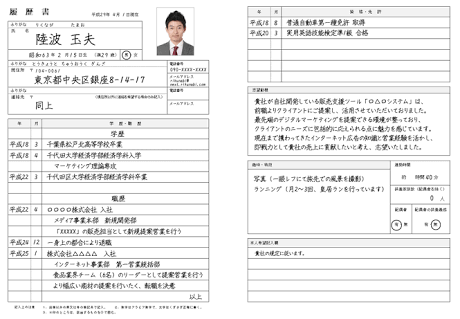 履 歴 書
平成29年 4月 1日現在
ふりがな りくなみ たまお
氏 名
陸波 玉夫
昭和63年 2月15日生 (満29歳) 男・女
ふりがな とうきょうと ちゅうおうく ぎんざ
電話番号
現住所 〒104-0061
東京都中央区銀座8-14-17
メールアドレス
ふりがな
電話番号
連絡先 〒
同上
メールアドレス
年 月 学 歴 ・ 職 歴
学歴
平成18 3 千葉県松戸北高等学校卒業
平成18 4 千代田大学経済学部経済学科入学
マーケティング理論専攻
平成22 3 千代田区大学経済学部経済学科卒業
職歴
平成22 4 ○○○○株式会社 入社
メディア事業本部 新規開発部
「XXXXX」の販売担当として新規提案営業を行う
平成24 12 一身上の都合により退職
平成25 1 株式会社△△△△ 入社
インターネット事業部 第一営業統括部
食品業界チーム（6名）のリーダーとして提案営業を行う
より幅広い商材の提案を行いたく、転職を決意
以上
年 月 資 格 ・ 免 許
平成18 8 普通自動車第一種免許 取得
平成20 3 実用英語技能検定準1級 合格
志望動機
貴社が自社開発している販売支援ツール「ロムロムシステム」は、
前職よりクライアントにご提案し、活用させていただいておりました。
最先端のデジタルマーケティングを提案できる環境が整っており、
クライアントのニーズに包括的に応えられる点に魅力を感じています。
現在まで携わってきたインターネット広告の知識と営業経験を活かし、
即戦力として貴社の売上に貢献したいと考え、志望いたしました。
趣味・特技
写真（一眼レフにて旅先での風景を撮影）
ランニング（月2〜3回、皇居ランを行っています）
通勤時間
約 時間 40 分
扶養家族数（配偶者を除く）
0 人
配偶者
有・無
配偶者の扶養義務
有・無
本人希望記入欄
貴社の規定に従います。